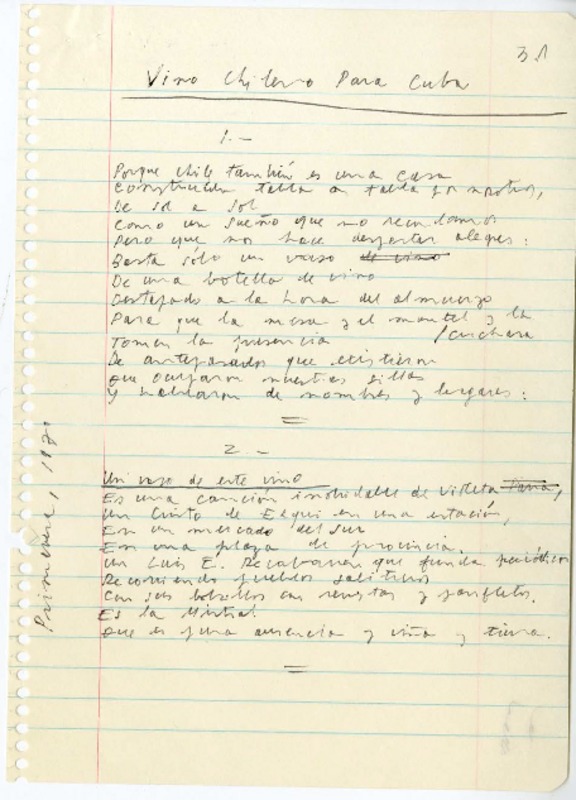 31
Vino chileno Para Cuba
1.-
Porque Chile también es una casa
Construida tabla a tabla por nosotros,
De sol a sol
Como un sueño que no recordamos
Pero que nos hace despertar alegres:
Basta sólo un vaso de vino
De una botella de vino
Destapado a la hora del almuerzo
Para que la mesa y el mantel y la
/cuchara
Tomen la presencia
De antepasados que existieron
que ocuparon nuestras sillas
Y hablaron de nombres y lugares:
2.-
Un vaso de este vino
Es una canción inolvidable de Violeta Parra,
Un Cristo de Elqui en una estación,
En un mercado del sur
En una plaza de provincia.
Un Luis E. Recabarren que funda periódicos
Recorriendo pueblos salitreros
Con sus bolsillos con revistas y panfletos.
Es la Mistral
que es pura ausencia y viña y tierra.
Primavera, 1970